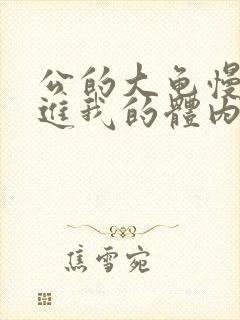 公的大龟慢
进我的體内
焦雪宛